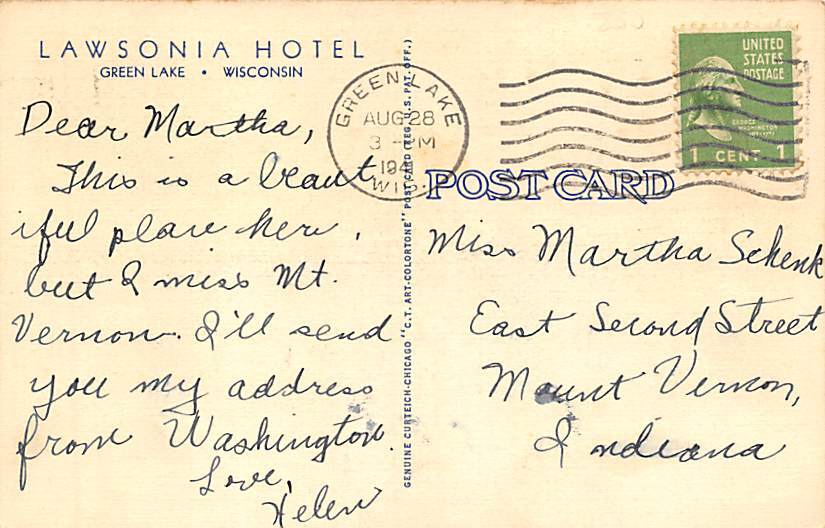 LAWSONIA HOTEL
GREEN LAKE • WISCONSIN
Dear Martha,
This is a beaut
iful place here,
but I miss Mt.
Vernon. I'll send
you my address
from Washington.
Love,
Helen
GENUINE CURTEICH-CHICAGO "C.T. ART-COLORTONE" POST CARD (REG. U.S. PAT. OFF.)
GREEN LAKE
AUG 28
3 - PM
194
WIS.
UNITED
STATES
POSTAGE
GEORGE
WASHINGTON
1 CENT 1
POST CARD
Miss Martha Schenk
East Second Street
Mount Vernon,
Indiana